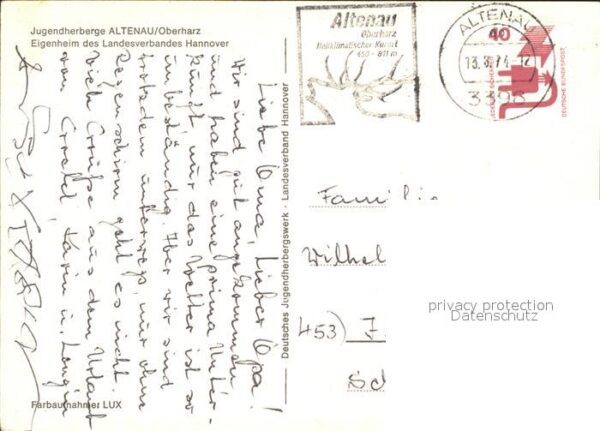 Jugendherberge ALTENAU/Oberharz
Eigenheim des Landesverbandes Hannover
Liebe Oma, Lieber Opa!
Wir sind gut angekommen
und haben eine prima Unter-
kunft, nur das Wetter ist so
unbeständig. Aber wir sind
trotzdem unterwegs, nur ohne
Regenschirm geht es nicht.
Viele Grüße aus dem Urlaub
von Gretel, Karin u.
Farbaufnahme: LUX
Deutsches Jugendherbergswerk · Landesverband Hannover
Altenau
Oberharz
Heilklimatischer Kurort
450 - 811 m
ALTENAU
13.8.74-12
3396
40
DEUTSCHE BUNDESPOST
Familie
Wilhel
453) I
Sch
privacy protection
Datenschutz